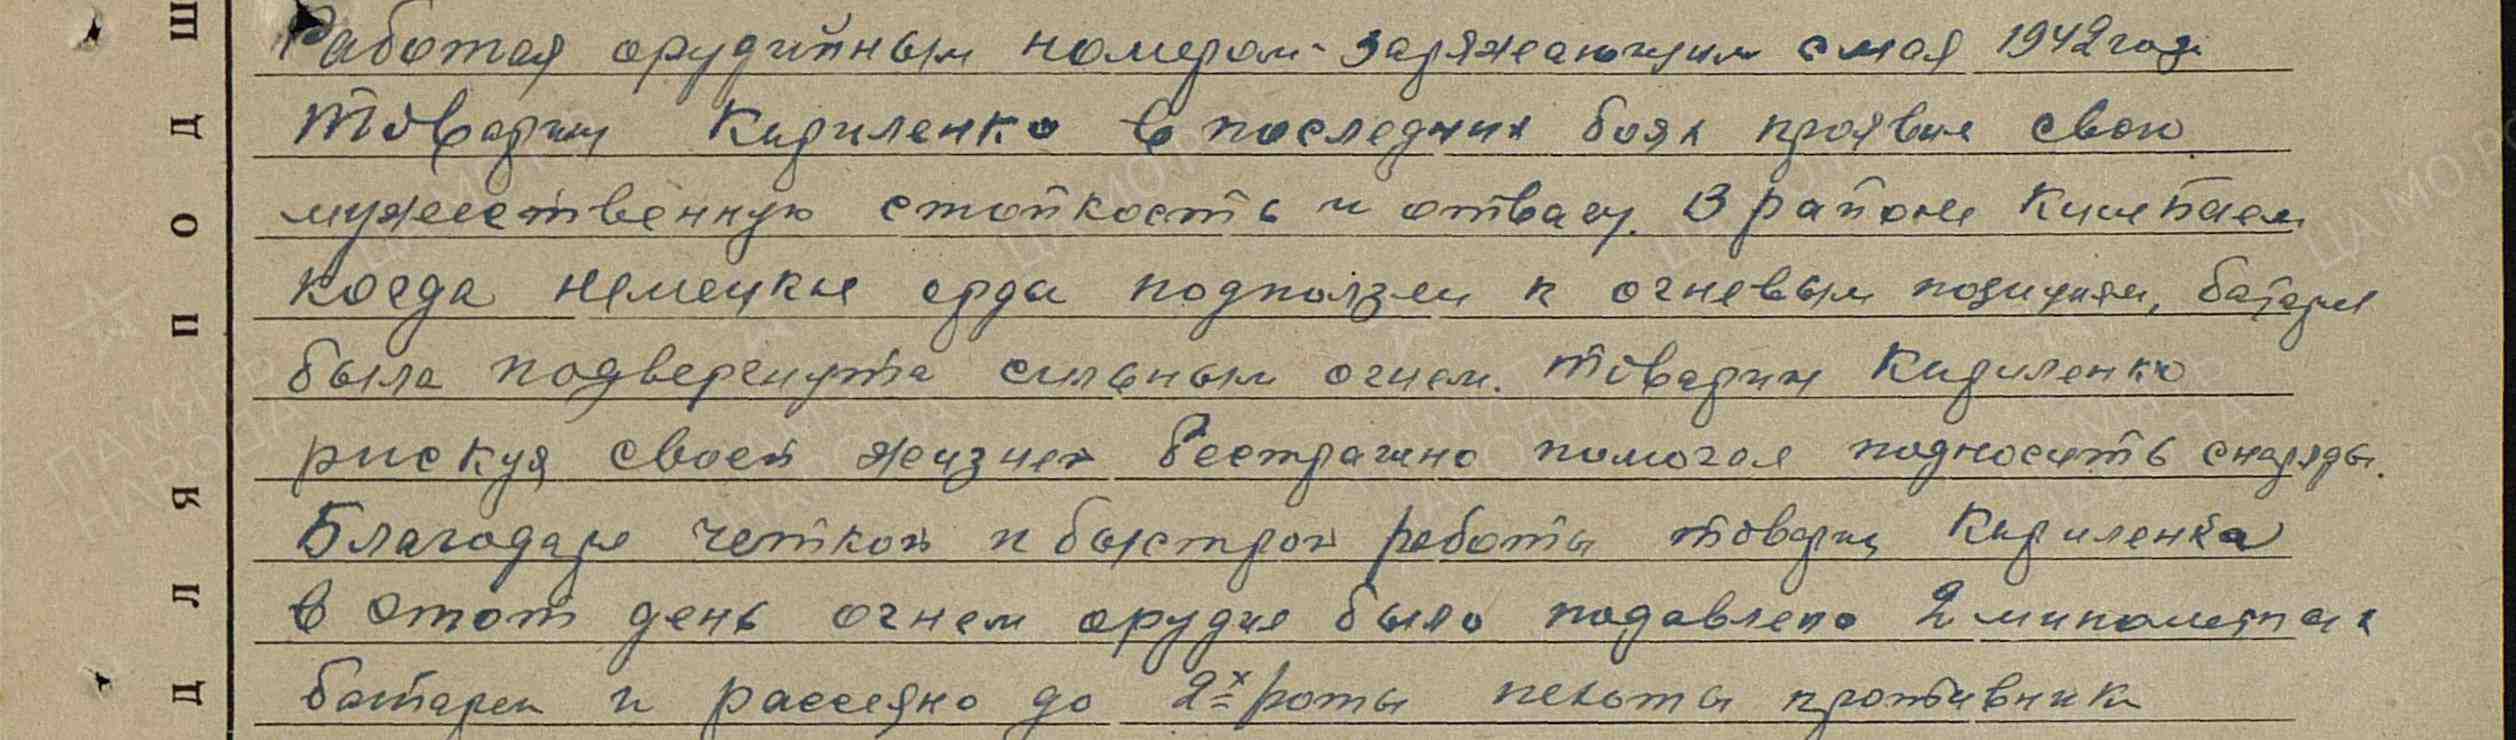 Работая орудийным номером-заряжающим с мая 1942 года
Товарищ Кириленко в последних боях проявил свою
мужественную стойкость и отвагу. В районе
когда немецкие орды подползли к огневым позициям, батарея
была подвергнута сильным огнем. Товарищ Кириленко
рискуя своей жизнью бесстрашно помогал подносить снаряды.
Благодаря четкой и быстрой работы товарищ Кириленка
в этот день огнем орудия было подавлено 2 минометных
батареи и рассеяно до 2х роты пехоты противника
ДЛЯ ПОДШ